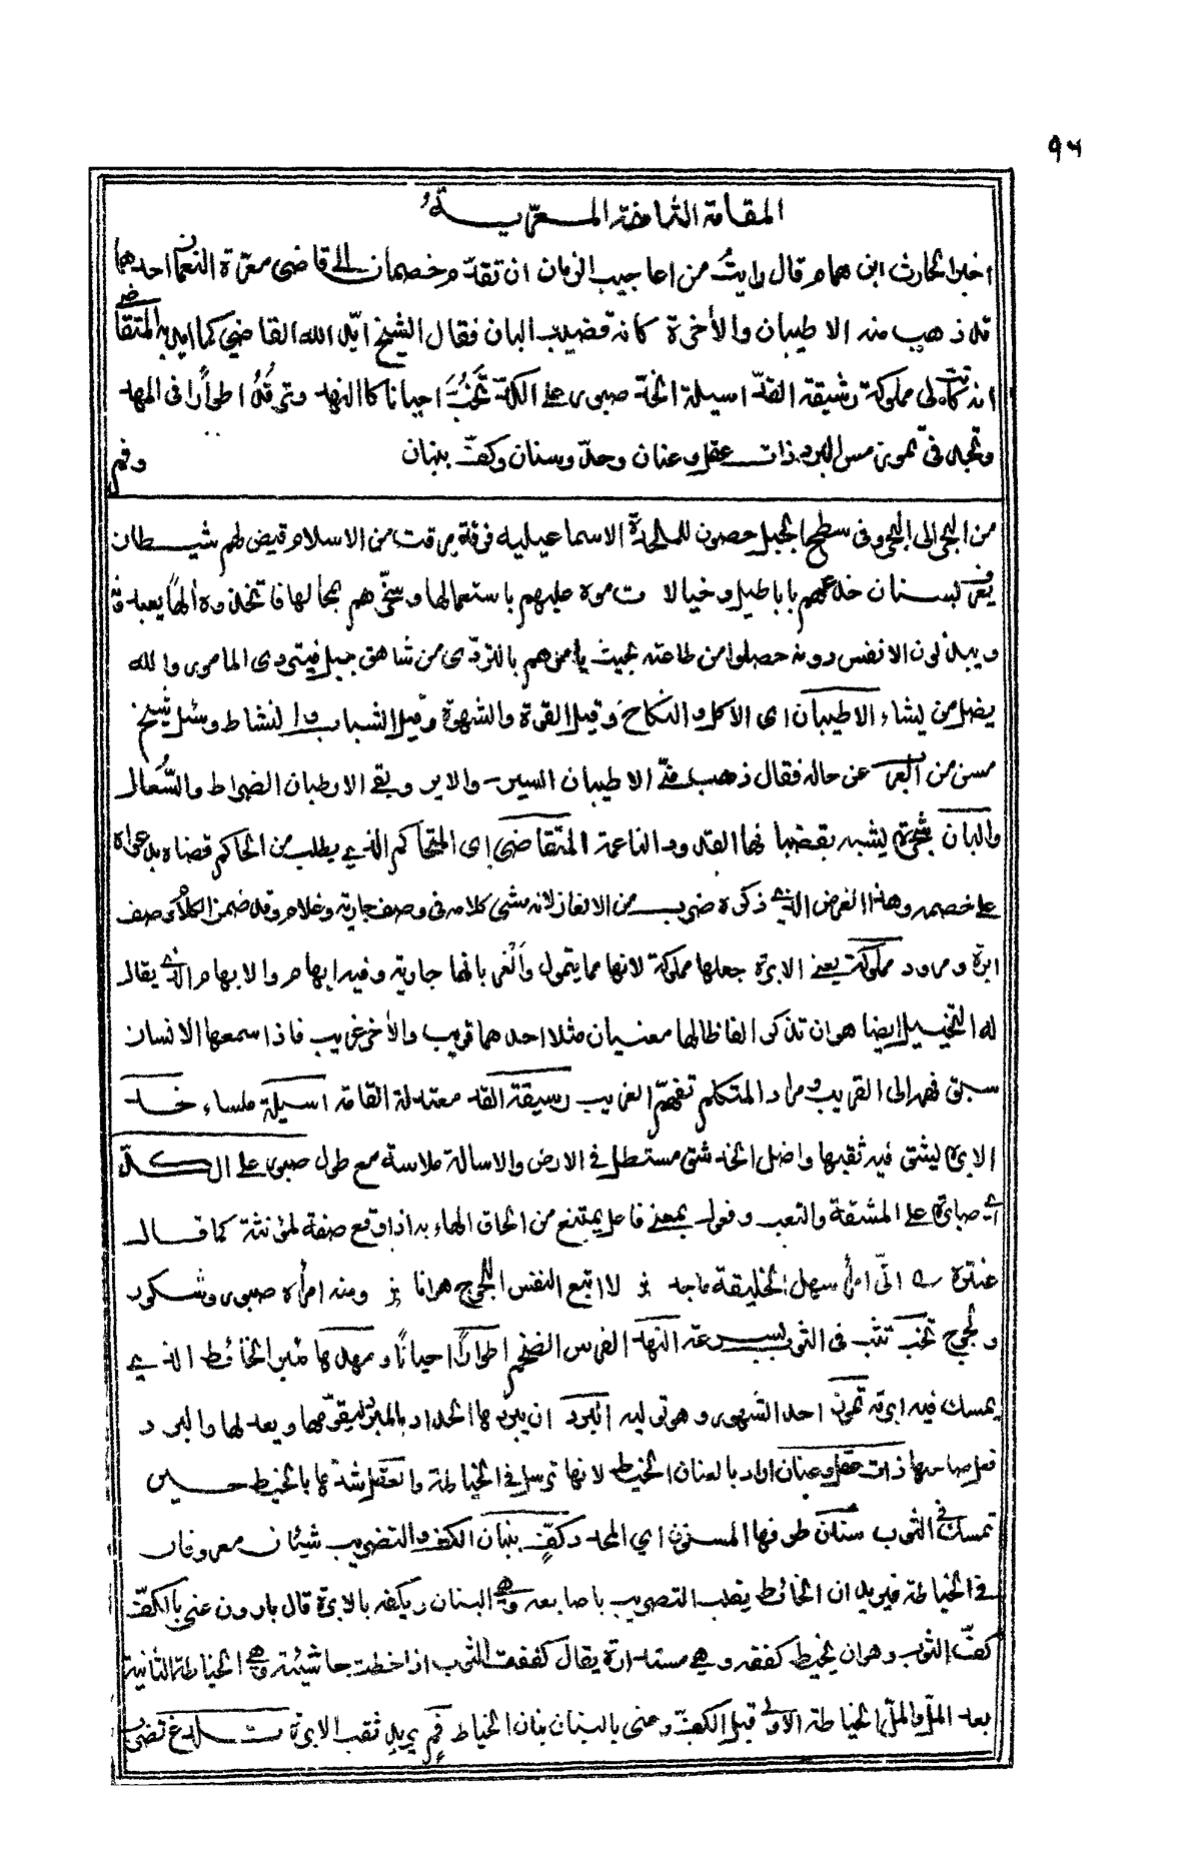 ٩٦
المقامة الثامنة المعرّيـــة
اخبرالحارث ابن همام قال رايتُ من اعاجيب الزمان ان تقدّم خصمان الى قاضى معرّة النعمان احدهما
قد ذهب منه الاطيبان والأخرة كانه قضيب البان فقال الشيخ ايّد الله القاضي كما ايد به المتقاضى
انه كانت لى مملوكة رشيقة القدّ اسيلة الخدّ صبور على الكدّ تخُبُّ احيانا كالنهد وترقُد اطوارًا فى المهد
وتجد فى تموز مس البرد ذات عقل وعنان وحدّ وسنان وكفّ ببنان وفم
من البحر الى البحر وفى سطح الجبل حصون للملاحدة الاسماعيليه فرقة مرقت من الاسلام قيض لهم شيـطان
يعرف بسنان خدعهم باباطيل وخيالات موه عليهم باستعمالها وسخّرهم بمحالها فاتخذوه الهًا يعبدونه
ويبذلون الانفس دونه حصلوا من طاعته بحيث يامرهم بالتردّى من شاهق جبل فيتردى المامور والله
يضل من يشاء الاطيبان اى الاكل والنكاح وقيل القوة والشهوة وقيل الشباب والنشاط وسئل شيخ
مسن من العرب عن حاله فقال ذهب منّى الاطيبان السير والاير وبقى الارطبان الضراط والسُّعال
والبان شجرة يشبه بقضبانها القدود الناعمة المتقاضى اى المتحاكم الذى يطلب من الحاكم قضاه بدعواه
على خصمه وهذا الغرض الذى ذكره ضرب من الالغاز لانه مشى كلامه فى وصف جارية وغلام وقد ضمن الكلام وصف
ابرة ومرود مملوكة يعنى الابرة جعلها مملوكة لانها مما يتمول وألغى بانها جارية وفيه ايهام والايهام الذى يقال
له التخييل ايضا هو ان تذكر الفاظا لها معنيان مثلا احدهما قريب والأخر غريب فاذا سمعها الانسان
سبق فهمه الى القريب ومراد المتكلم تفهّم الغريب رسيقة القد معتدلة القامة اسيلة ملساء خـــد
الابرة ليشق فيه ثقبها واصل الخد شق مستطيل فى الارض والاسالة ملاسة مع طول صبور على الكـــدّ
اى صبارة على المشقة والتعب وفعول بمعنى فاعل يمتنع من الحاق الهاء به اذا وقع صفة لمؤنثة كما قــال
عنترة انّى امرأ سهل الخليقة ماجد لا اتبع النفس اللجوج هوانا ومنه امرأة صبور وشكور
ولجوج تخب تثب فى الثوب بسرعة النهد الفرس الضخم اطوارًا احيانًا ومهدها مئبر الخائط الذى
يمسك فيه ابرته تموز احد الشهور وهو توليه البرد ان يبرد ها الحداد بالمبرد ليقوّمها ويعدلها والبرد
فعل صاحبها ذات عقل وعنان اراد بالعنان الخيط لانها ترسل فى الخياطة والعقل شدّها بالخيط حـــين
تمسك فى الثوب سنان طرفها المسنون اي المحد وكفٍّ ببنان الكف والتضريب شيئان معروفان
فى الخياطة فيريد ان الخائط يقلب التضريب باصابعه وهى البنان ويكفه بالابرة قال بارون عنى بالكفّ
كفّ الثوب وهو ان يخيط كففه وهى مستدارة يقال كففت الثوب اذا خطت حاشيته وهى الخياطة الثانية
بعد الملّ والملّ الخياطة الاولى قبل الكفّ وعنى بالبنان بنان الخياط فمٍ يريد ثقب الابرة تـــلدغ تضرب